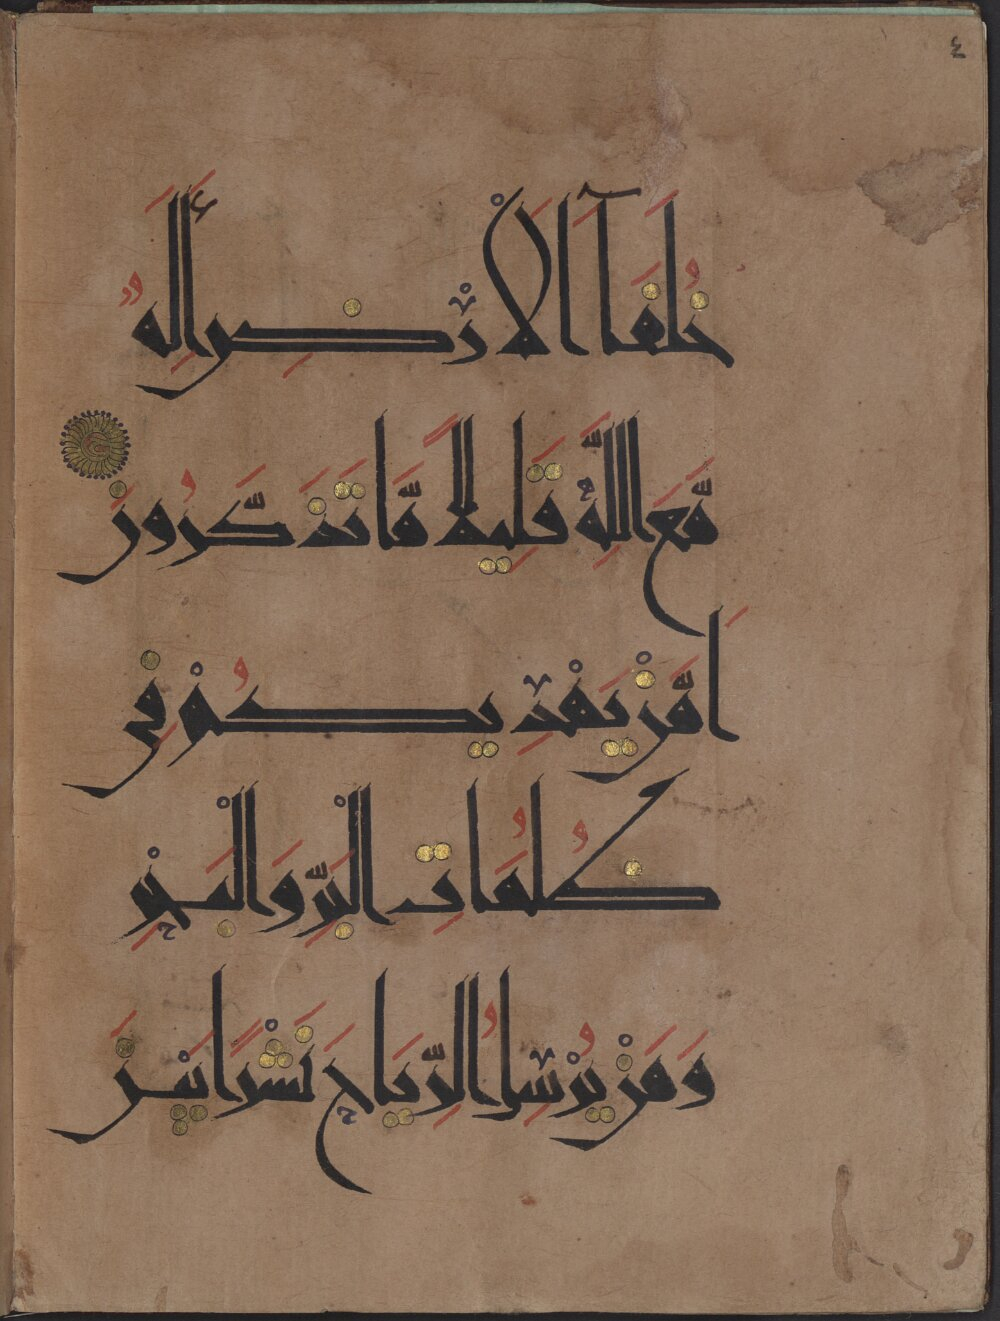 ٤
خُلَفَآ الْأَرْضِ أَإِلَهٌ
مَّعَ اللَّهِ قَلِيلًا مَّا تَذَكَّرُونَ
أَمَّنْ يَهْدِيكُمْ فِي
ظُلُمَاتِ الْبَرِّ وَالْبَحْرِ
وَمَنْ يُرْسِلُ الرِّيَاحَ نَشْرًا بَيْنَ